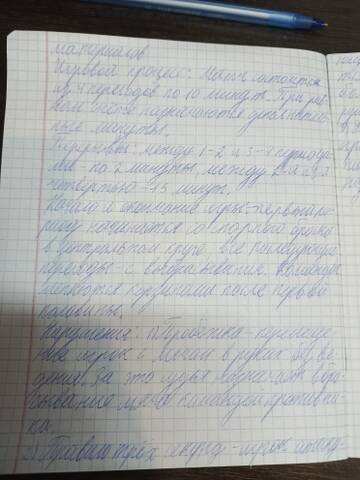 материалов.
Игровой процесс: Матч состоится
из 4 периодов по 10 минут. При рав-
ном счёте назначаются дополнитель-
ные минуты.
Перерывы: между 1-2 и 3-4 периода-
ми - по 2 минуты, между 2-й и 3-й
четвертью - 15 минут.
Начало и окончание игры: первый пе-
риод начинается со спорного броска
в центральном круге, все последующие
периоды - с вбрасывания. Команды
меняются корзинами после первой
половины.
Нарушения: 1) Пробежка - перемеще-
ние игрока с мячом в руках без ве-
дения. За это судья назначает вбра-
сывания мяча командой противни-
ка.
2) Правило трёх секунд - игрок атаку-